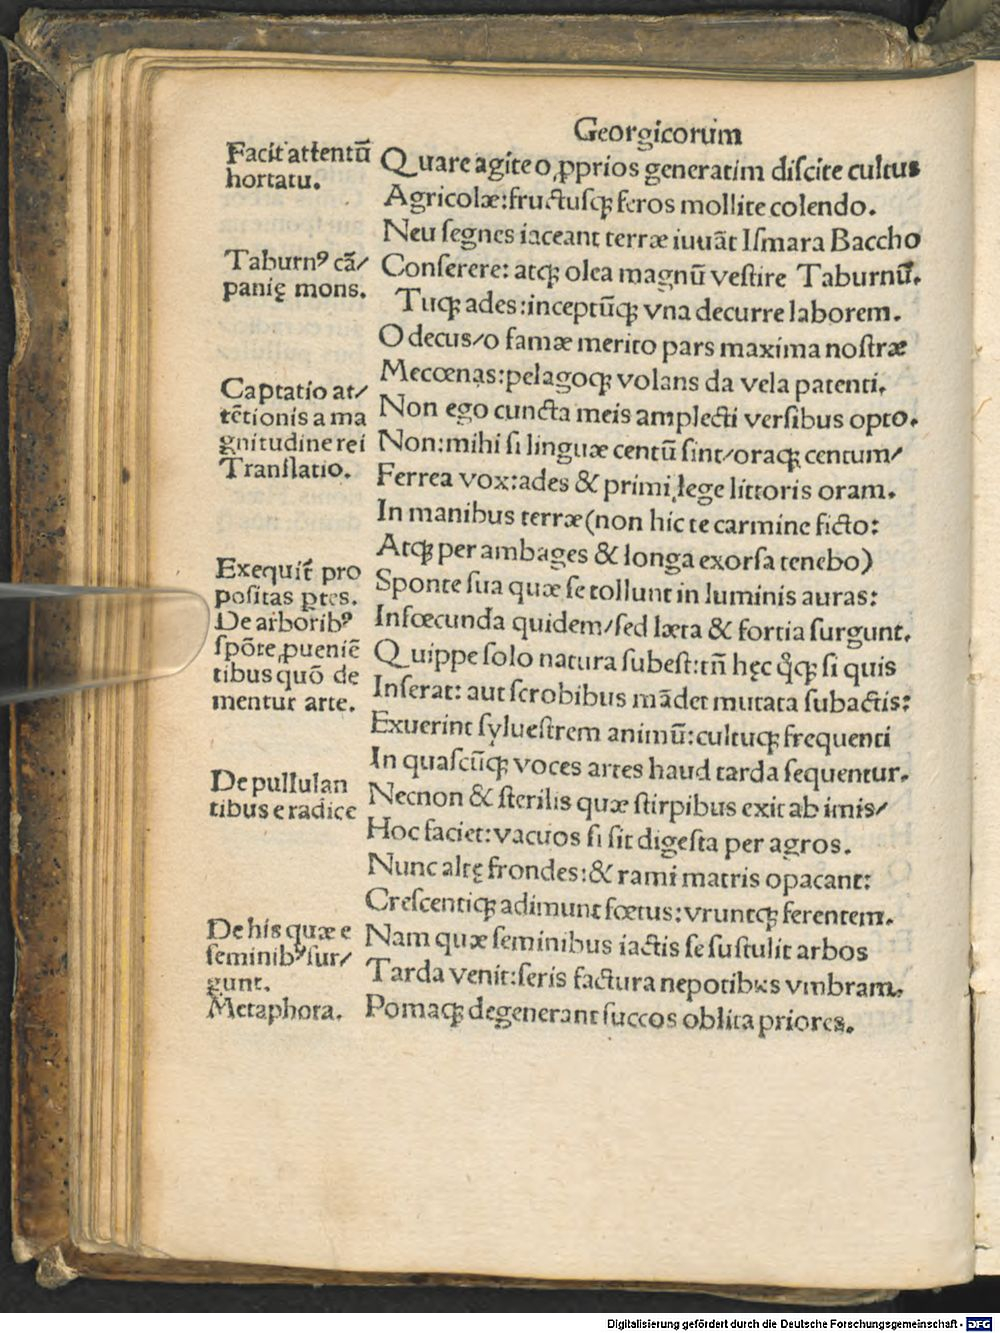 Georgicorum
Facit attentū
hortatu.
Quare agite o ꝓprios generatim diſcite cultus
Agricolæ: fructuſqꝫ feros mollite colendo.
Neu ſegnes iaceant terræ iuuāt Iſmara Baccho
Taburnꝰ cā/
panię mons.
Conſerere: atqꝫ olea magnū veſtire Taburnū.
Tuqꝫ ades: inceptūqꝫ vna decurre laborem.
O decus/o famæ merito pars maxima noſtræ
Mecœnas: pelagoqꝫ volans da vela patenti.
Captatio at/
tētionis a ma
gnitudine rei
Tranſlatio.
Non ego cuncta meis amplecti verſibus opto.
Non: mihi ſi linguæ centū ſint/oraqꝫ centum/
Ferrea vox: ades & primi lege littoris oram.
In manibus terræ (non hic te carmine ficto:
Atqꝫ per ambages & longa exorſa tenebo)
Exequit᷑ pro
poſitas ꝑtes.
De arboribꝰ
ſpōte ꝓueniē
tibus quō de
mentur arte.
Sponte ſua quæ ſe tollunt in luminis auras:
Infœcunda quidem/ſed læta & fortia ſurgunt.
Quippe ſolo natura ſubeſt: tñ hęc qͦqꝫ ſi quis
Inſerat: aut ſcrobibus mādet mutata ſubactis:
Exuerint ſylueſtrem animū: cultuqꝫ frequenti
In quaſcūqꝫ voces artes haud tarda ſequentur.
De pullulan
tibus e radice
Necnon & ſterilis quæ ſtirpibus exit ab imis/
Hoc faciet: vacuos ſi ſit digeſta per agros.
Nunc altę frondes: & rami matris opacant:
Creſcentiqꝫ adimunt fœtus: vruntqꝫ ferentem.
De his quæ e
ſeminibꝰ ſur/
gunt.
Metaphora.
Nam quæ ſeminibus iactis ſe ſuſtulit arbos
Tarda venit: ſeris factura nepotibus vmbram.
Pomaqꝫ degenerant ſuccos oblita priores.
Digitalisierung gefördert durch die Deutsche Forschungsgemeinschaft - DFG